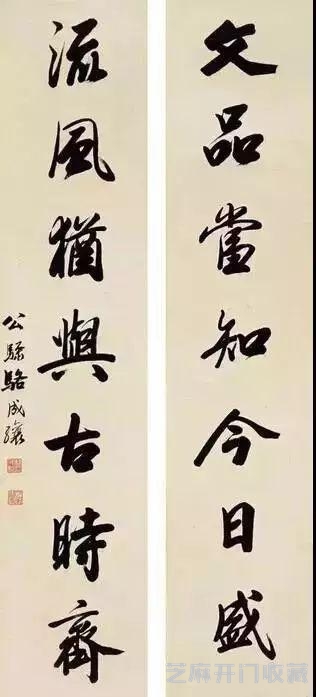 文品當知今日盛
流風猶與古時齊
公驌駱成驤
芝麻开门收藏